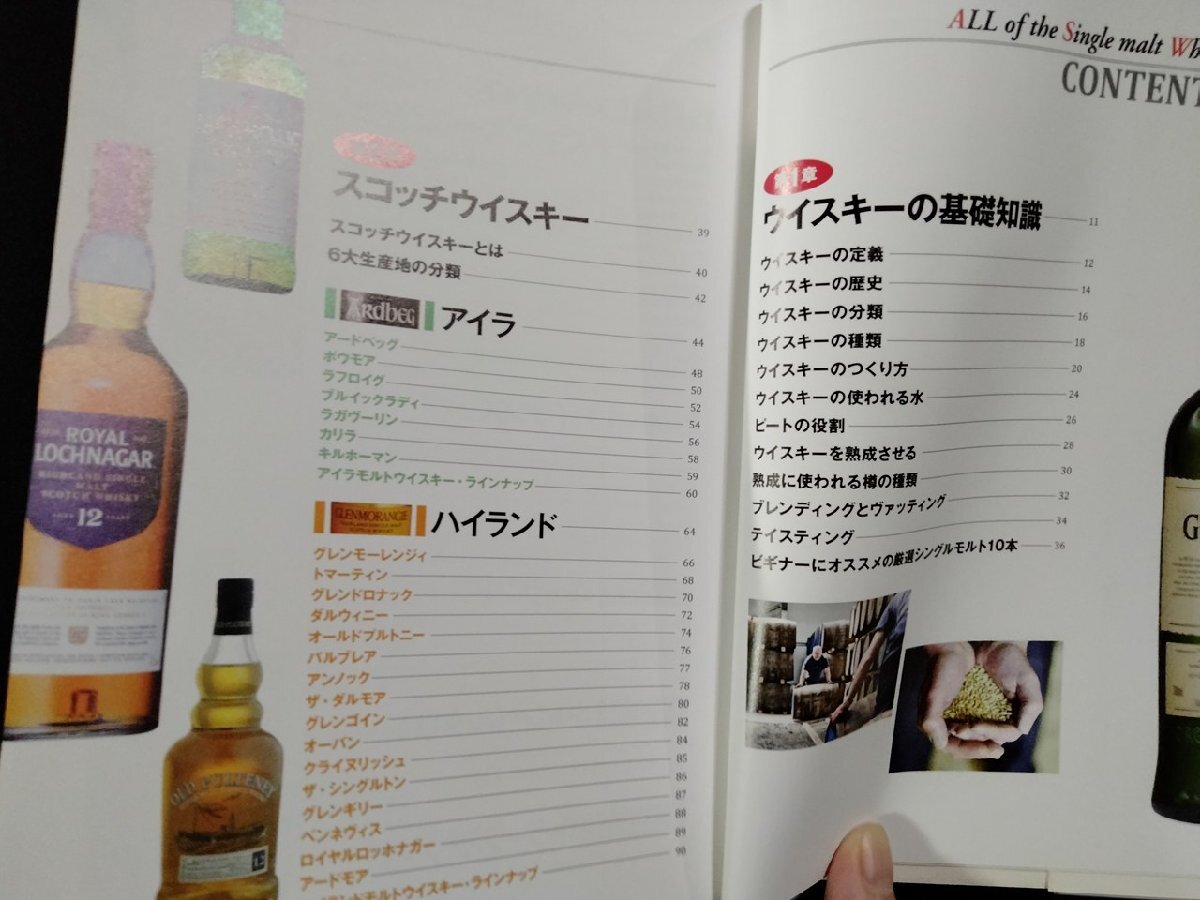 スコッチウイスキー 39
スコッチウイスキーとは 40
6大生産地の分類 42
ARdbeg アイラ 44
アードベッグ 48
ボウモア 50
ラフロイグ 52
ブルイックラディ 54
ラガヴーリン 56
カリラ 58
キルホーマン 59
アイラモルトウイスキー・ラインナップ 60
GLENMORANGIE ハイランド 64
グレンモーレンジィ 66
トマーティン 68
グレンドロナック 70
ダルウィニー 72
オールドプルトニー 74
バルブレア 76
アンノック 77
ザ・ダルモア 78
グレンゴイン 80
オーバン 82
クライヌリッシュ 84
ザ・シングルトン 85
グレンギリー 86
ベンネヴィス 87
ロイヤルロッホナガー 88
アードモア 89
ランドモルトウイスキー・ラインナップ 90
ROYAL
LOCHNAGAR
HIGHLAND SINGLE
MALT
SCOTCH WHISKY
AGED 12 YEARS
OLD PULTENEY
12
ALL of the Single malt Wh
CONTENT
第1章
ウイスキーの基礎知識 11
ウイスキーの定義 12
ウイスキーの歴史 14
ウイスキーの分類 16
ウイスキーの種類 18
ウイスキーのつくり方 20
ウイスキーの使われる水 24
ピートの役割 26
ウイスキーを熟成させる 28
熟成に使われる樽の種類 30
ブレンディングとヴァッティング 32
テイスティング 34
ビギナーにオススメの厳選シングルモルト10本 36
G